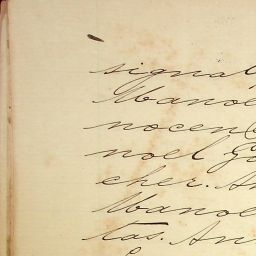 signal
Manoe
nocen
noel Go
cher. An
Manoe
tas. An